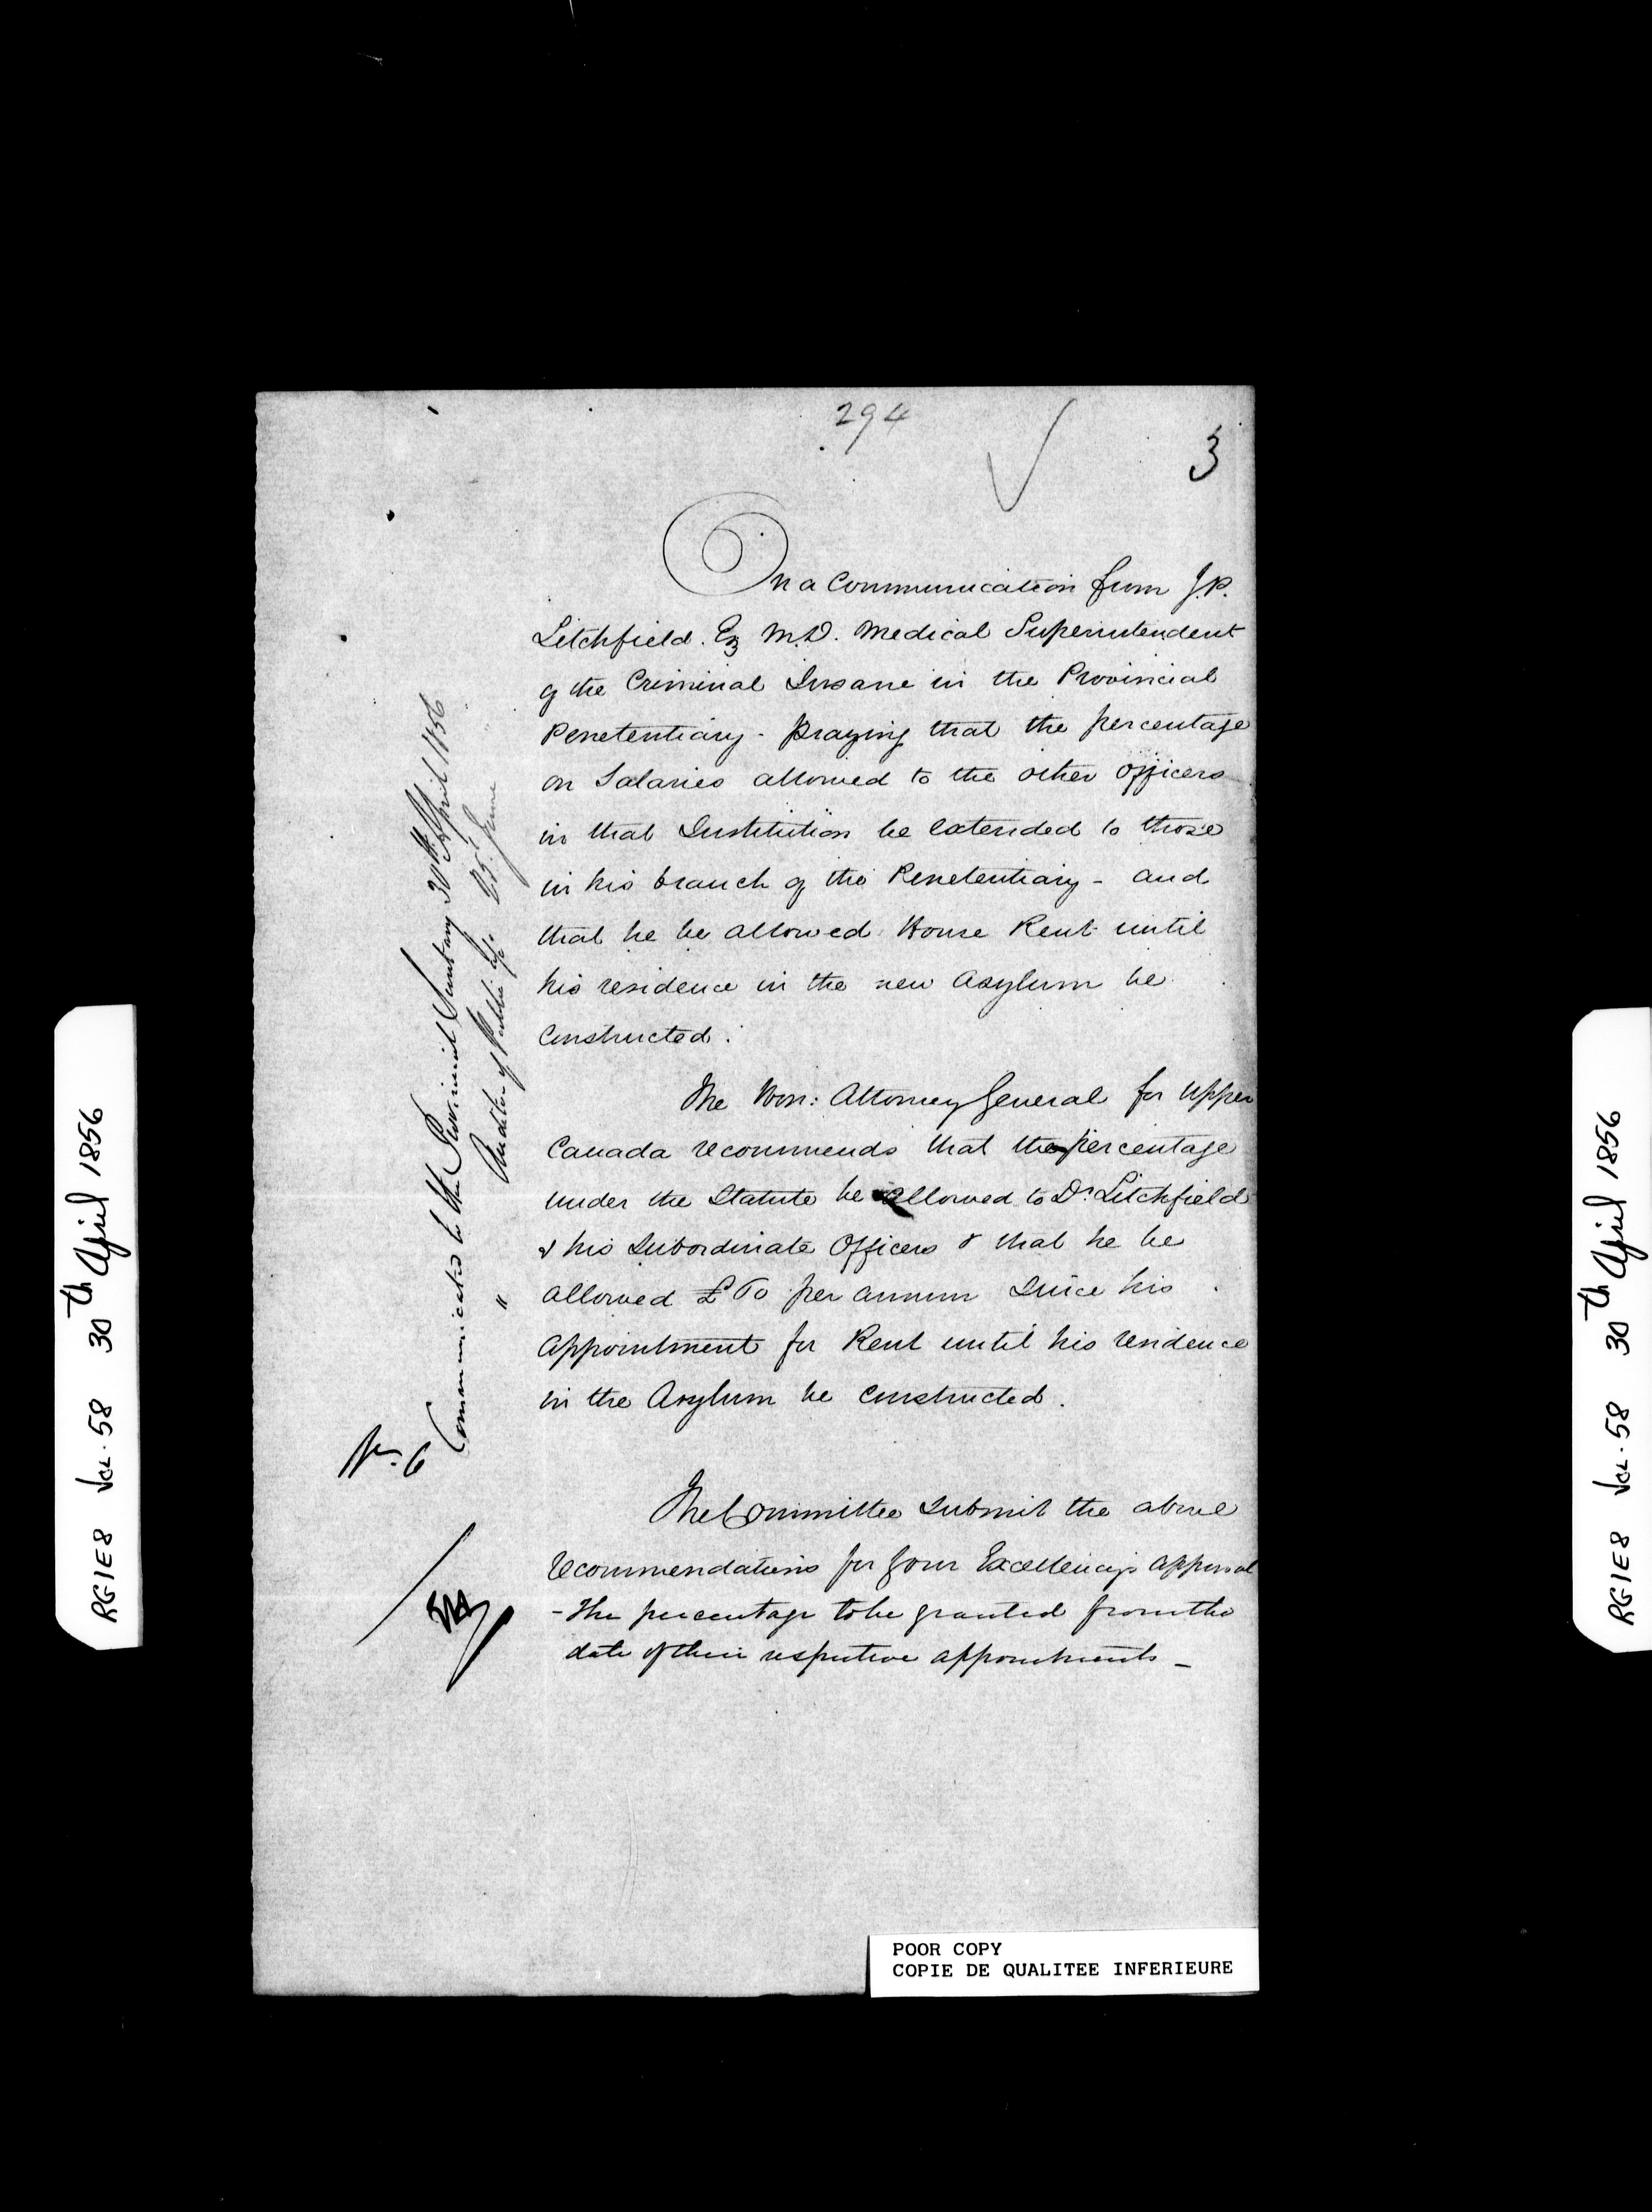 294
3
On a Communication from J.P.
Litchfield. Esq M.D. Medical Superintendent
of the Criminal Insane in the Provincial
Penetentiary - praying that the percentage
on Salaries allowed to the other officers
in that Institution be extended to those
in his branch of the Penetentiary - and
that he be allowed House Rent until
his residence in the new Asylum be
Constructed.
The Hon: Attorney General for Upper
Canada recommends that the percentage
under the Statute be allowed to Dr. Litchfield
& his Subordinate Officers & that he be
allowed £ per annum Since his
appointment for Rent until his residence
in the Asylum be Constructed.
The Committee Submit the above
recommendations for Your Excellency's approval
- The percentage to be granted from the
date of their respective appointments -
No. 6
Communicated to the Provincial Secretary 30th April 1856
" Auditor of Public A/c 25 June
RG1E8 VOL. 58 30th April 1856
RG1E8 VOL. 58 30th April 1856
POOR COPY
COPIE DE QUALITEE INFERIEURE